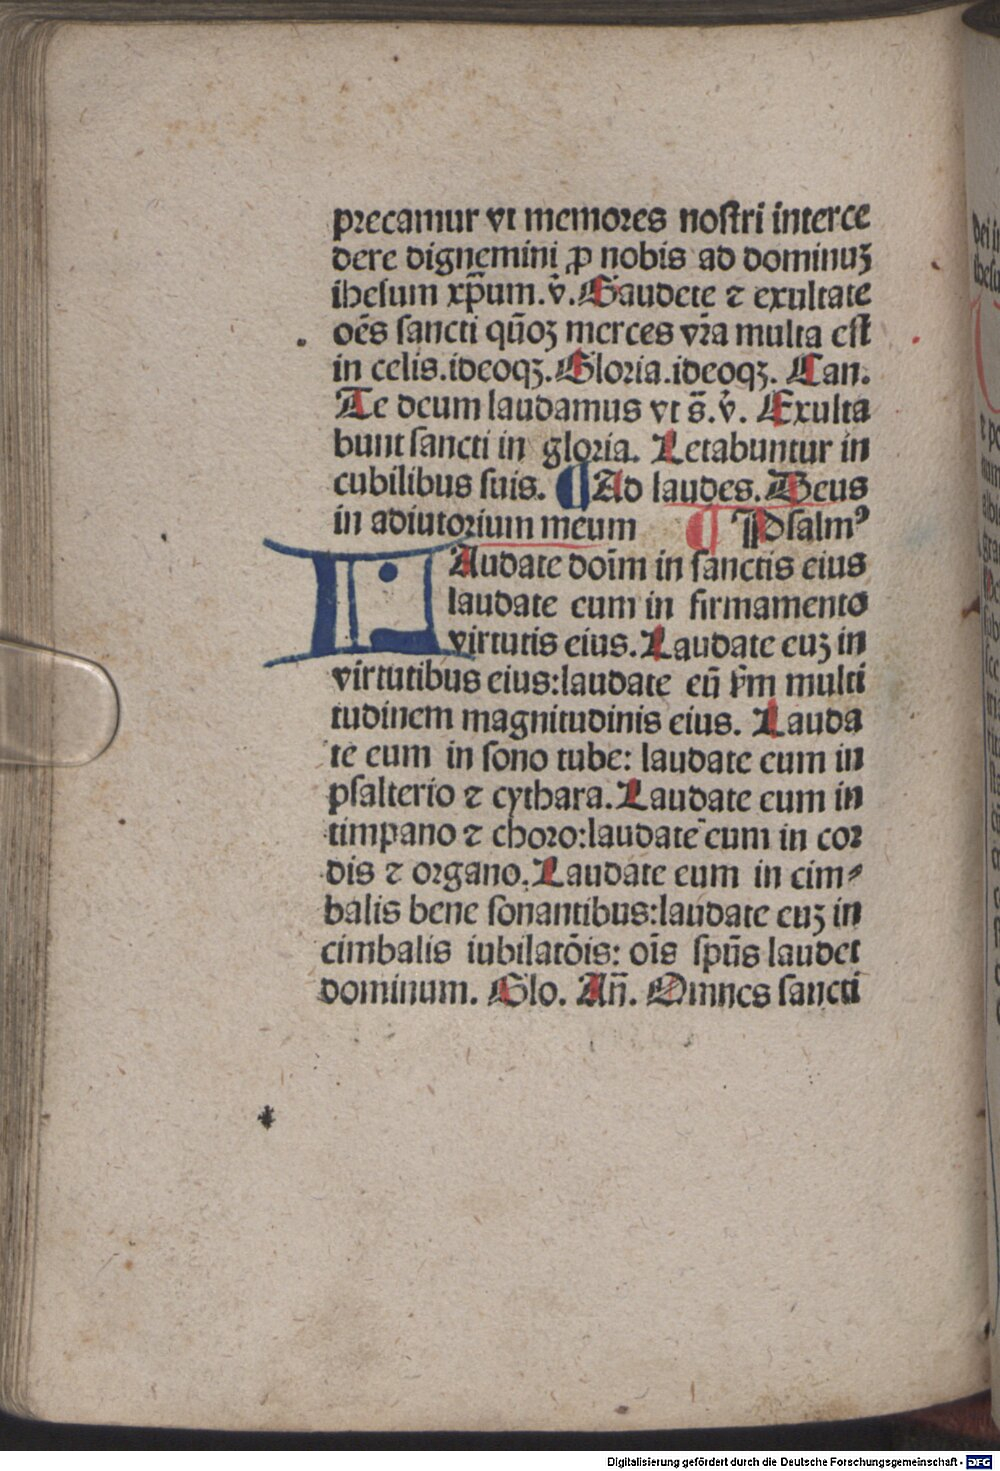 precamur vt memores noſtri interce
dere dignemini ꝓ nobis ad dominuꝫ
iheſum xp̄um. v̊. Gaudete ⁊ exultate
oēs ſancti qm̄oꝫ merces vr̄a multa eſt
in celis. ideoqꝫ. Gloria. ideoqꝫ. Can.
Te deum laudamus vt s̄. v̊. Exulta
bunt ſancti in gloria. Letabuntur in
cubilibus ſuis. ¶ Ad laudes. Deus
in adiutorium meum ¶ Pſalmꝰ
LAudate doīm in ſanctis eius
laudate eum in firmamento
virtutis eius. Laudate euꝫ in
virtutibus eius: laudate eū ẜm multi
tudinem magnitudinis eius. Lauda
te eum in ſono tube: laudate eum in
pſalterio ⁊ cythara. Laudate eum in
timpano ⁊ choro: laudate eum in cor
dis ⁊ organo. Laudate eum in cim⸗
balis bene ſonantibus: laudate euꝫ in
cimbalis iubilatōis: oīs ſpūs laudet
dominum. Glo. Añ. Omnes ſancti
Digitalisierung gefördert durch die Deutsche Forschungsgemeinschaft - DFG